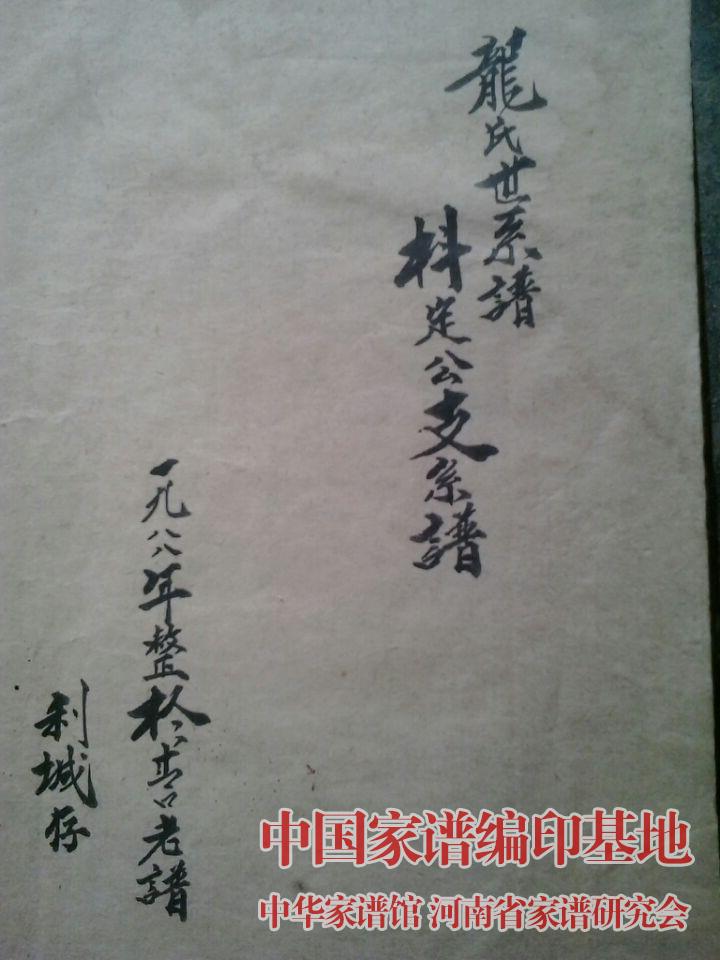 龍氏世系譜
科定公支系譜
一九八八年整於善老譜
利城存
中国家谱编印基地
中华家谱馆 河南省家谱研究会